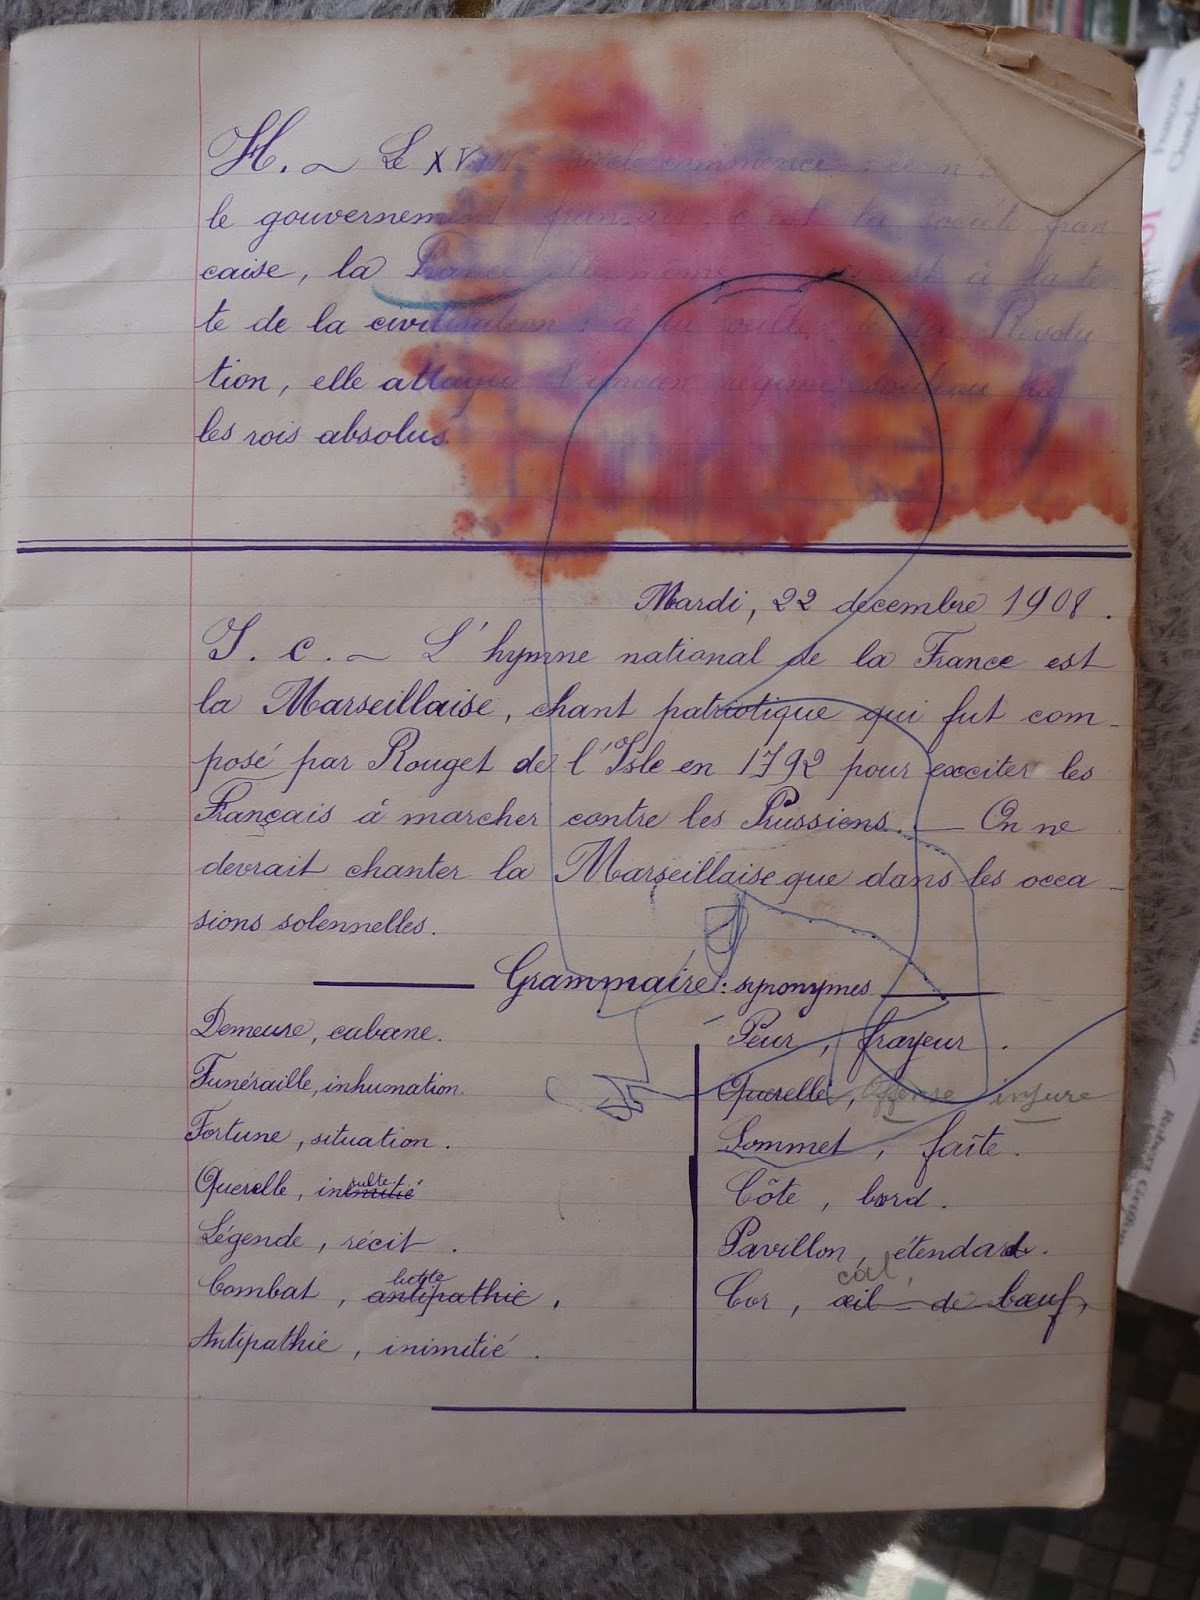 H. – Le XVIIIe siècle commence :
le gouvernement français c'est la société fran
caise, la France elle même est à la te
te de la civilisation : à la veille de la Révolu
tion, elle attaque l'ancien régime soutenu par
les rois absolus
Mardi, 22 decembre 1908.
I. C. – L'hymne national de la France est
la Marseillaise, chant patriotique qui fut com-
posé par Rouget de l'Isle en 1792 pour exciter les
Français à marcher contre les Prussiens. — On ne
devrait chanter la Marseillaise que dans les occa-
sions solennelles.
Grammaire : synonymes
Demeure, cabane.
Funéraille, inhumation.
Fortune, situation.
Querelle, inimitié sulte
Légende, récit.
Combat, antipathie lutte,
Antipathie, inimitié.
Peur, frayeur.
Querelle, offense injure
Sommet, faîte.
Côte, bord.
Pavillon, étendard.
Cor, œil-de-bœuf, cal,